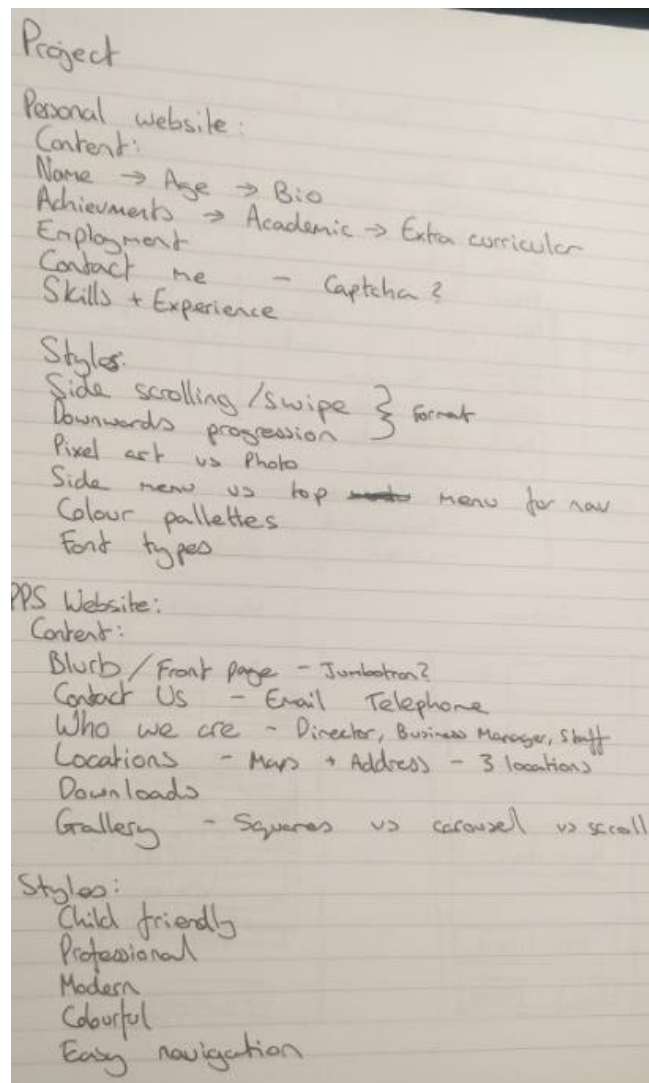 Project
Personal website:
Content:
Name → Age → Bio
Achievments → Academic → Extra curricular
Employment
Contact me - Captcha?
Skills + Experience
Styles:
Side scrolling/swipe } Format
Downwards progression
Pixel art vs Photo
Side menu vs top menu for nav
Colour pallettes
Font types
PPS Website:
Content:
Blurb/Front page - Jumbotron?
Contact Us - Email Telephone
Who we are - Director, Business Manager, Staff
Locations - Maps + Address - 3 locations
Downloads
Gallery - Squares vs carousel vs scroll
Styles:
Child friendly
Professional
Modern
Colourful
Easy navigation